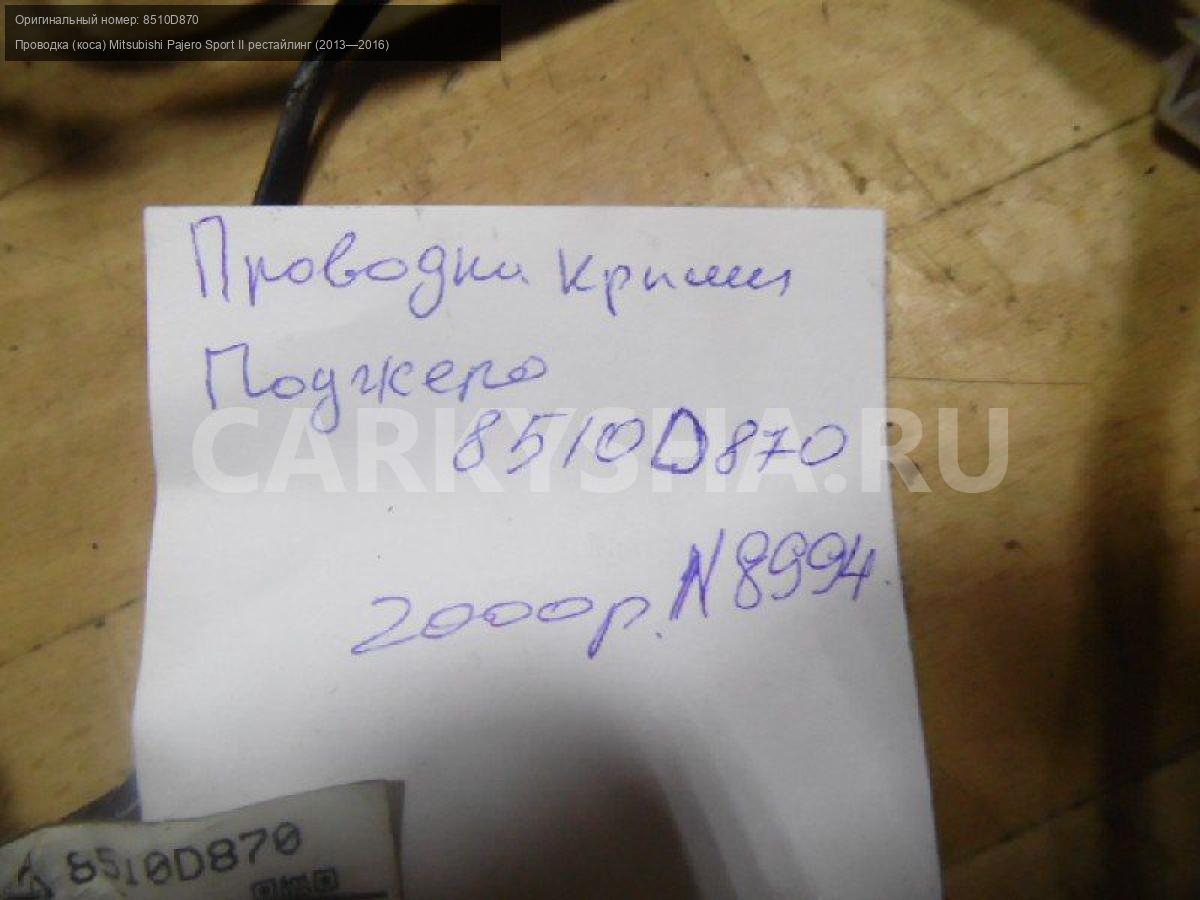 Оригинальный номер: 8510D870
Проводка (коса) Mitsubishi Pajero Sport II рестайлинг (2013—2016)
Проводка крыши
Поджеро
8510D870
CARKYSHA.RU
N8994
2000р.
8510D870